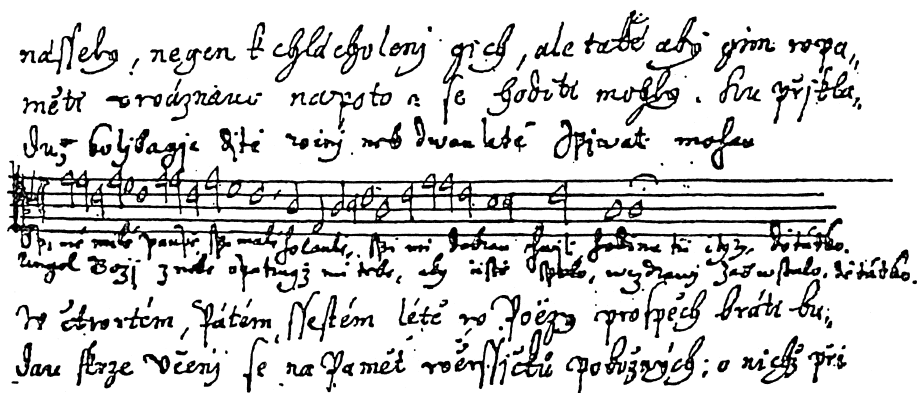 nássleby, negen k chlácholenj gich, ale také aby gim w pa„
měti vwáznauc napotom se hoditi mohly. Ku přjkla„
du, koljbagje djtě roinj neb dwauleté spiwati mohau
Spi, mé milé paupě, spi malé holaubě, spi mi dobrau chwjli hodinu tu i tyz, děťátko.
Angel Božj z nebe opatrugž mi tebe, aby gistě spalo, we zdrawj zas wstalo, děťátko.
W čtwrtém, Pátém, Ssestém létě w Poëzy prospěch bráti bu„
dau skrze včenj se na Pamět wěrssjčků pobožných; o nichž při